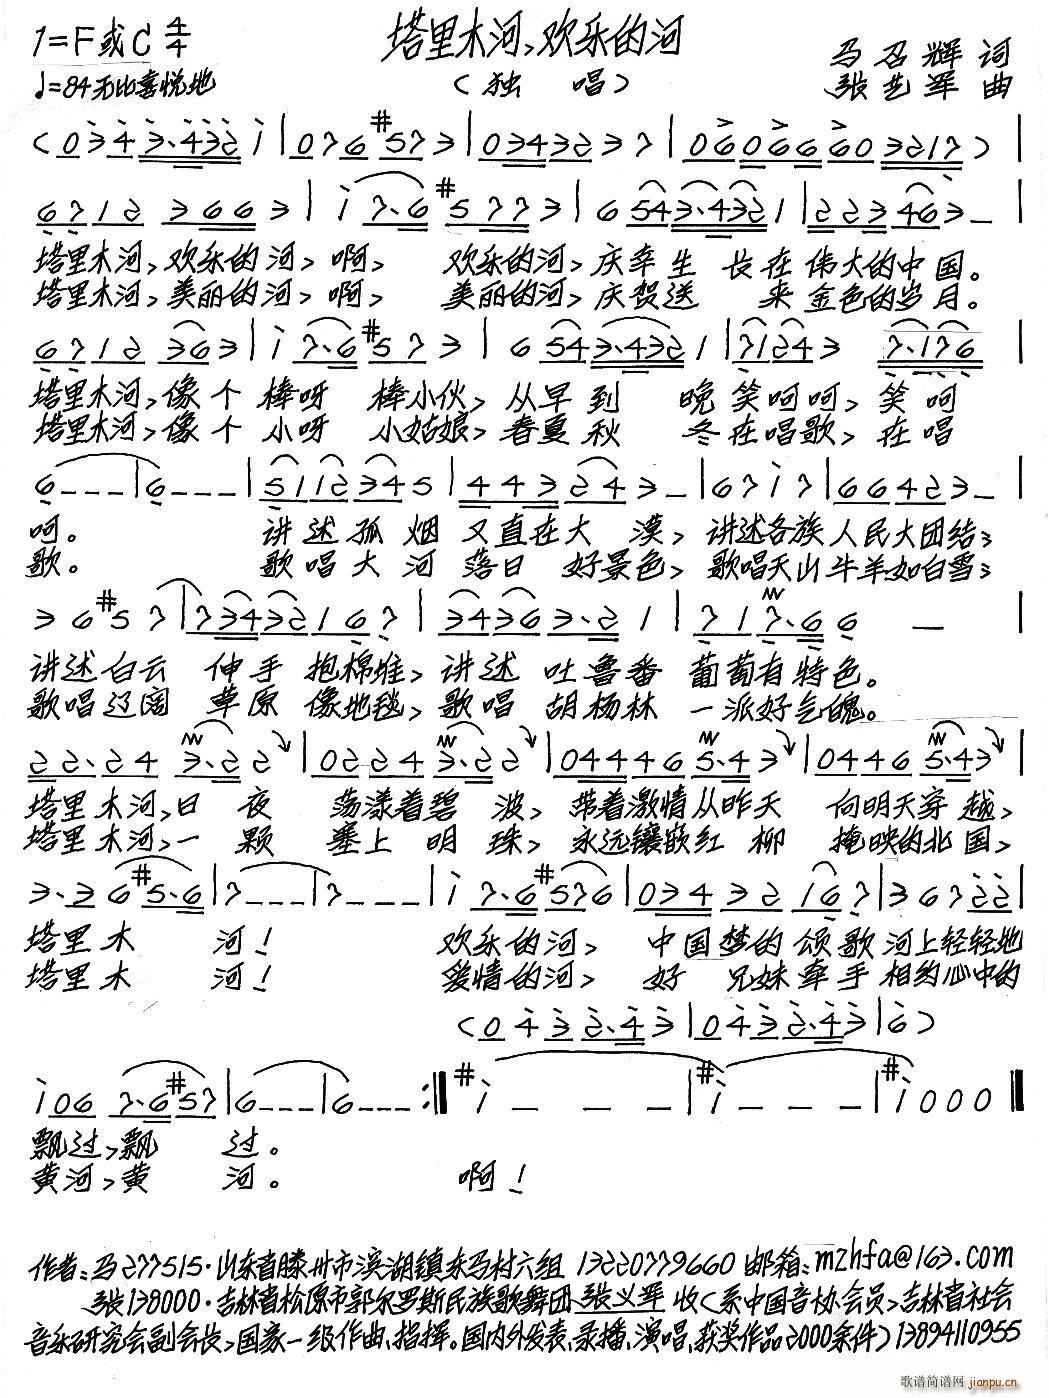 塔里木河,欢乐的河
1=F或C 4/4
♩=84无比喜悦地
(独 唱)
马召辉 词
张艺军 曲
塔里木河,欢乐的河,啊, 欢乐的河,庆幸生 长在伟大的中国。
塔里木河,美丽的河,啊, 美丽的河,庆贺送 来金色的岁月。
塔里木河,像个棒呀 棒小伙,从早到 晚笑呵呵,笑呵
塔里木河,像个小呀 小姑娘,春夏秋 冬在唱歌,在唱
呵。 讲述孤烟 又直在大 漠,讲述各族人民大团结;
歌。 歌唱大河 落日 好景色,歌唱天山牛羊如白雪;
讲述白云 伸手 抱棉堆,讲述 吐鲁番 葡萄有特色。
歌唱辽阔 草原 像地毯,歌唱 胡杨林 一派好气魄。
塔里木河,日 夜 荡漾着碧 波,带着激情从昨天 向明天穿越,
塔里木河,一 颗 塞上明 珠,永远镶嵌红柳 掩映的北国,
塔里木 河! 欢乐的河, 中国梦的颂歌河上轻轻地
塔里木 河! 爱情的河, 好 兄妹牵手相约心中的
飘过,飘 过。
黄河,黄 河。 啊!
作者:马277515·山东省滕州市滨湖镇东马村六组 13220779660 邮箱:mzhfa@163.com
张138000·吉林省松原市郭尔罗斯民族歌舞团 张义军 收(系中国音协会员,吉林省社会
音乐研究会副会长,国家一级作曲、指挥。国内外发表、录播、演唱、获奖作品2000余件)13894110955
歌谱简谱网 jianpu.cn